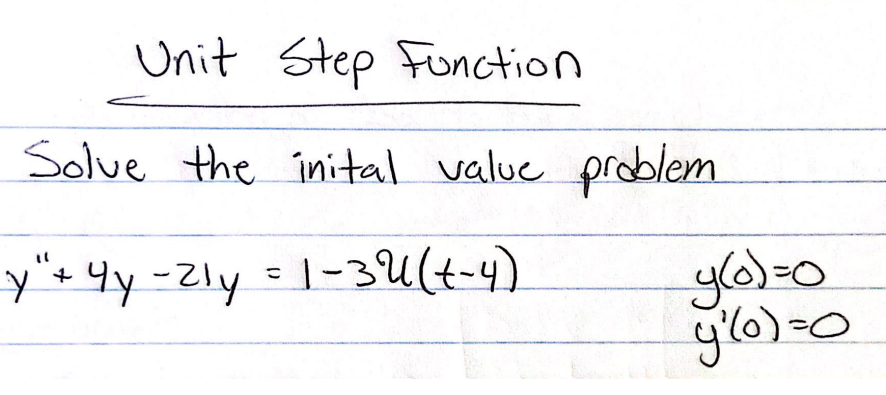 Unit Step Function
Solve the inital value problem
y"+ 4y -21y = 1-3U(t-4) y(0)=0
y'(0)=0